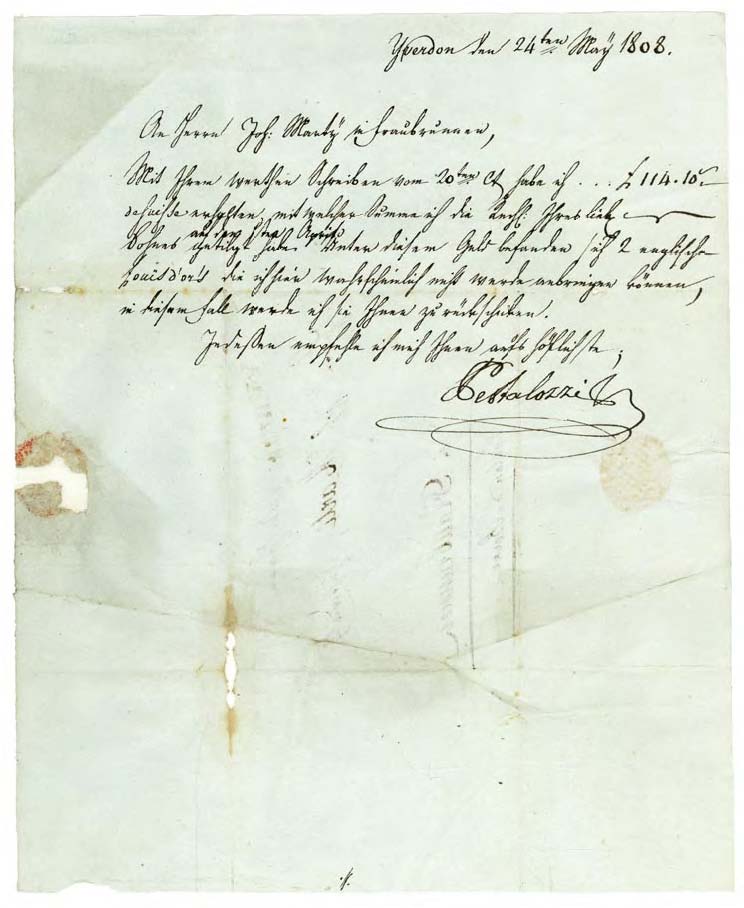 Yverdon den 24ten Maÿ 1808.
An Herrn Joh: Martÿ in Fraubrunnen,
Mit Ihrem werthen Schreiben vom 20ten Ct habe ich . . . £ 114.10s
deSuisse erhalten, mit welcher Summe ich die Rech: Ihres lieb
auf den 1ten April
Sohnes getilgt habe. Unter diesem Geld befanden sich 2 englische
Louisd'ors die ich hier wahrscheinlich nicht werde anbringen können,
in diesem Fall werde ich sie Ihnen zurückschicken.
Indessen empfehle ich mich Ihnen aufs höflichste,
Pestalozzi